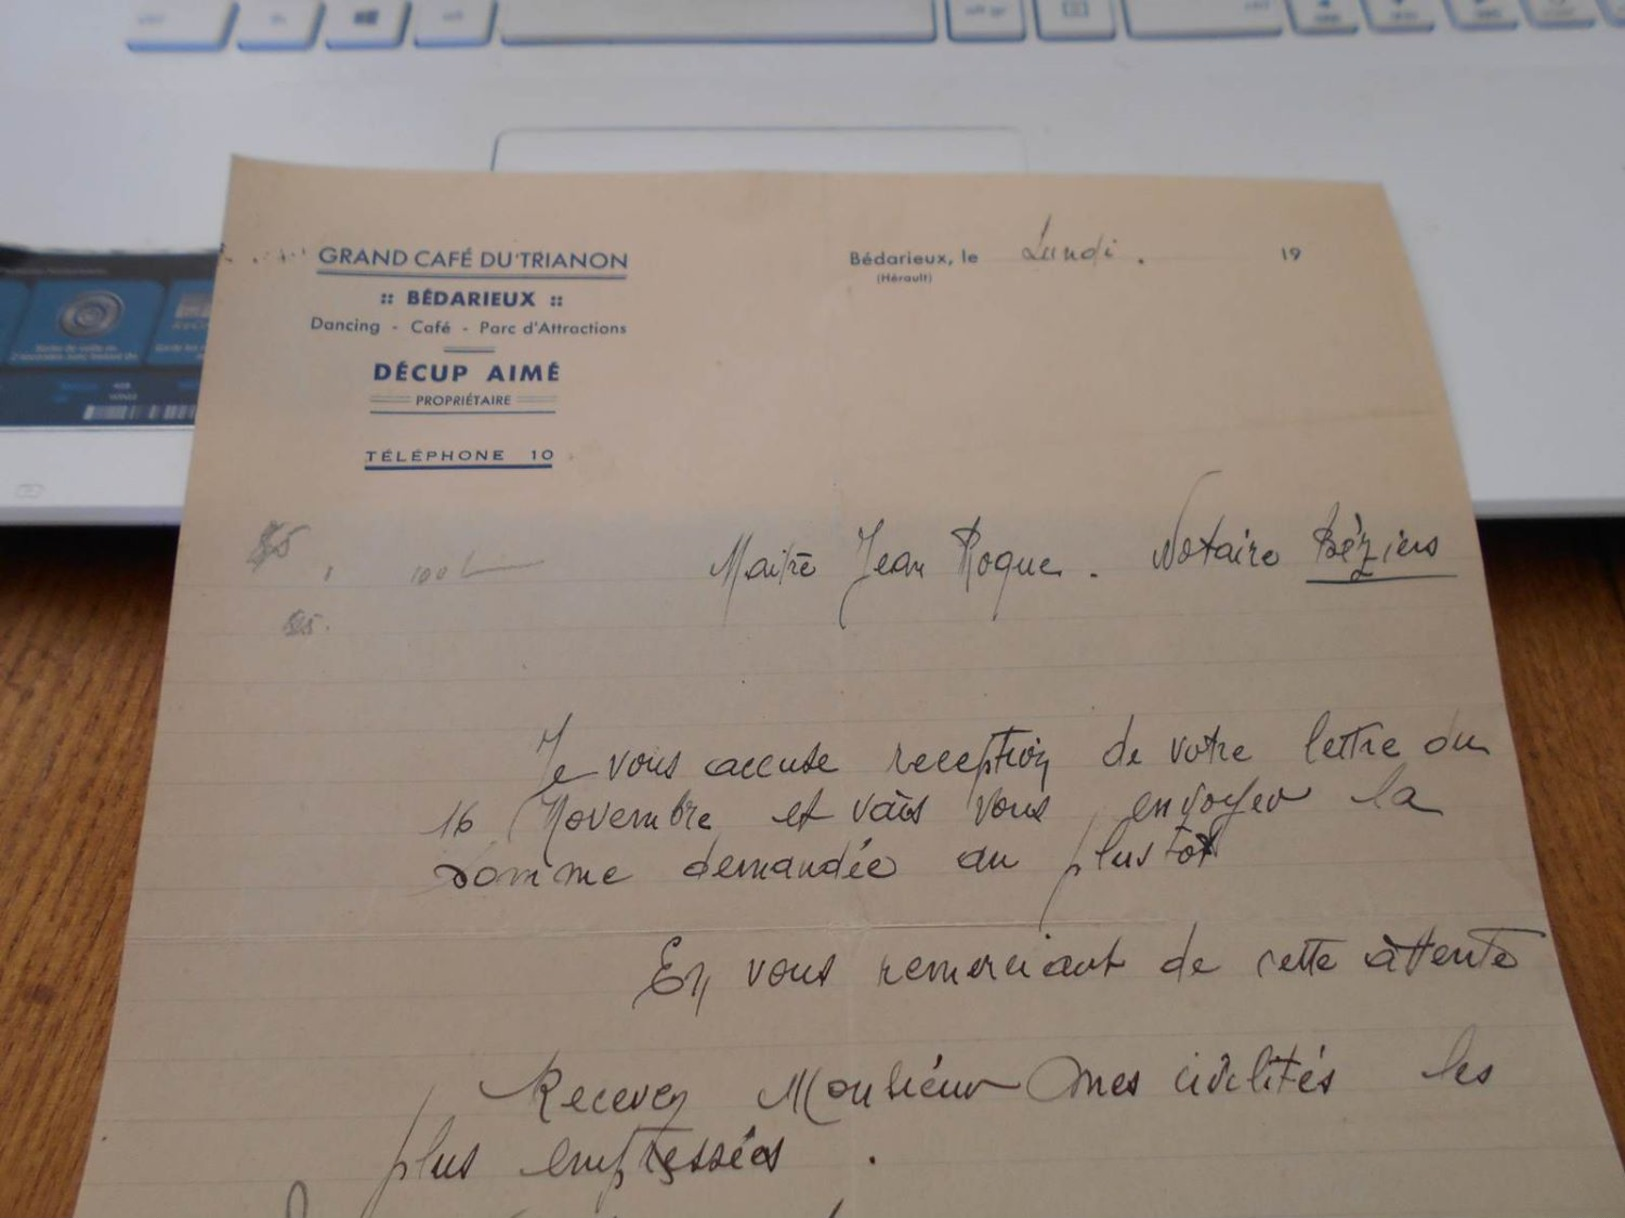 GRAND CAFÉ DU TRIANON
:: BÉDARIEUX ::
Dancing - Café - Parc d'Attractions
DÉCUP AIMÉ
PROPRIÉTAIRE
TÉLÉPHONE 10
Bédarieux, le Lundi. 19
(Hérault)
Maitre Jean Roque. Notaire Béziers
Je vous accuse reception de votre lettre du
16 Novembre et vais vous envoyer la
somme demandée au plus tot
En vous remerciant de cette attente
Recevez Monsieur mes civilités les
plus empressées.